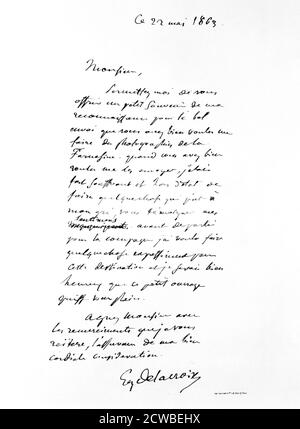 Ce 22 mai 1863.
Monsieur,
Permettez moi de vous
offrir un petit souvenir de ma
reconnaissance pour le bel
envoi que vous avez bien voulu me
faire des photographies de la
Farnésine. quand vous avez bien
voulu me les envoyer, j'étais
fort souffrant et hors d'état de
faire quelque chose qui put à
mon gré, vous témoigner mes
sentimens
avant de partir
pour la campagne j'ai voulu faire
quelque chose expressément pour
cette destination et je serais bien
heureux que ce petit ouvrage
put vous plaire.
Agréez Monsieur avec
les remerciements que je vous
réitère, l'assurance de ma bien
cordiale considération.
Eug Delacroix
alamy
Image ID: 2CWBEHX
www.alamy.com